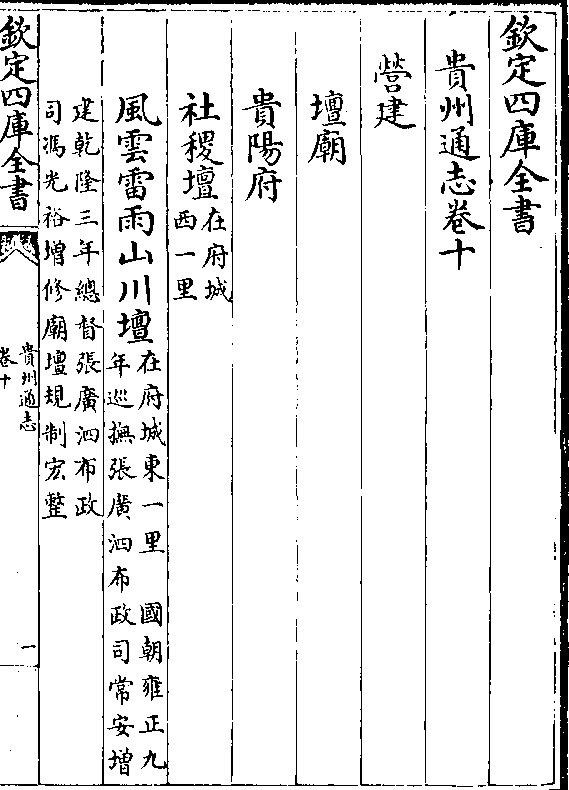 欽定四庫全書
貴州通志卷十
營建
壇廟
貴陽府
社稷壇在府城
西一里
風雲雷雨山川壇在府城東一里　國朝雍正九
年巡撫張廣泗布政司常安增
建乾隆三年總督張廣泗布政
司馮光裕增修廟壇規制宏整
欽定四庫全書
貴州通志
卷十
一